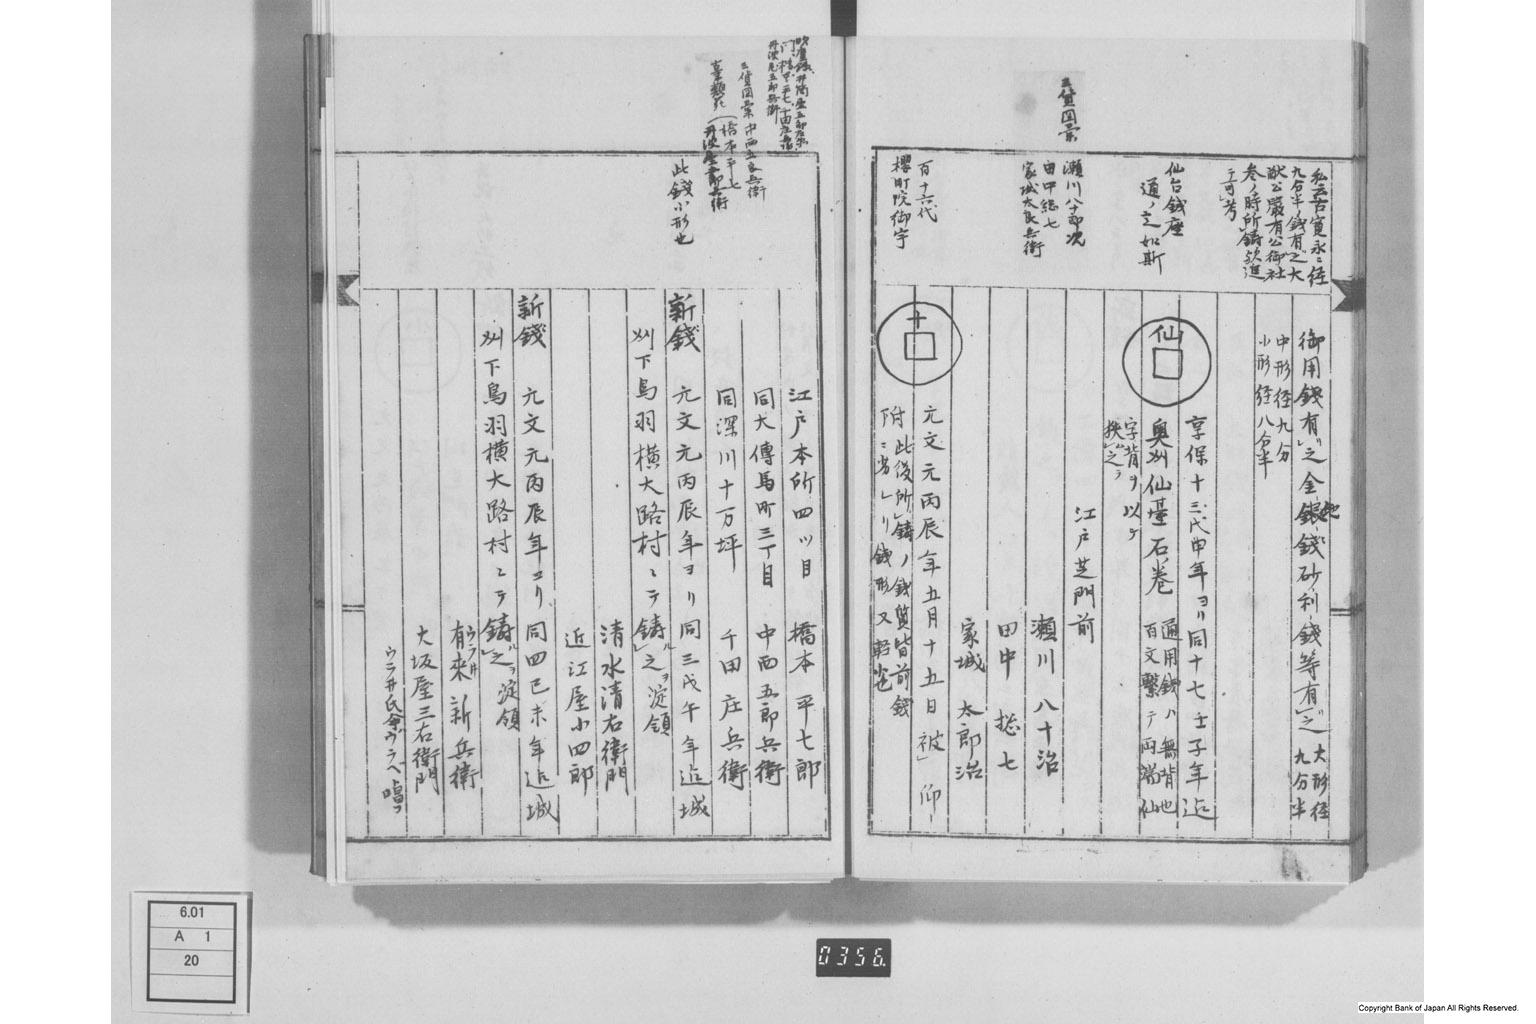 三貨図彙
私云古寛永ニ径
九分半ノ銭有之大
猷公嚴有公御社
参ノ時所鑄欤追
而可考
仙台銭座
通ノ之如斯
瀬川八十郎次
田中総七
家城太良兵衛
百十六代
櫻町院御宇
御用銭有リ之金銀銭砂利銭等有之大形径
九分半
中形径九分
小形径八分半
仙
享保十三戊申年ヨリ同十七壬子年迄
奥州仙臺石巻
通用銭ハ無背也
百文繋テ両端仙
字背ヲ以テ
挾之
江戸芝門前
瀬川八十治
田中総七
家城太郎治
十
元文元丙辰年五月十五日被仰
附此後所鑄ノ銭質皆前銭
ニ劣レリ銭形又軽也
三貨図彙中西五良兵衛
橋本平七
丹波屋五郎兵衛
此銭小形也
江戸本所四ツ目橋本平七郎
同大傳馬町三丁目中西五郎兵衛
同深川十万坪千田庄兵衛
新銭元文元丙辰年ヨリ同三戊午年迄城
州下鳥羽横大路村ニテ鑄之淀領
清水清右衛門
近江屋小四郎
新銭元文元丙辰年ヨリ同四己未年迄城
州下鳥羽横大路村ニテ鑄之淀領
有來新兵衛
大坂屋三右衛門
6.01
A 1
20
0356
Copyright Bank of Japan All Rights Reserved.